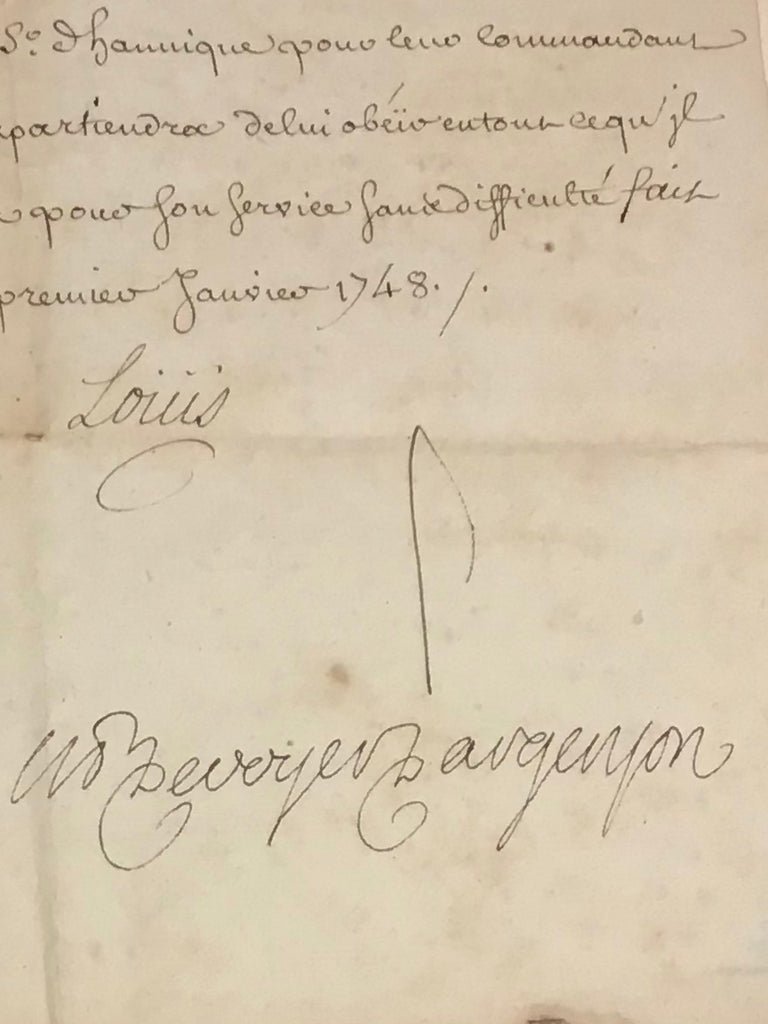 Sr. Dhannique pour leur Commandant
partiendra de luiobéir entout cequ'jl
pour Son Service Sans difficulté fait
premier Janvier 1748. /.
Loüis
M P De voyer D argenson